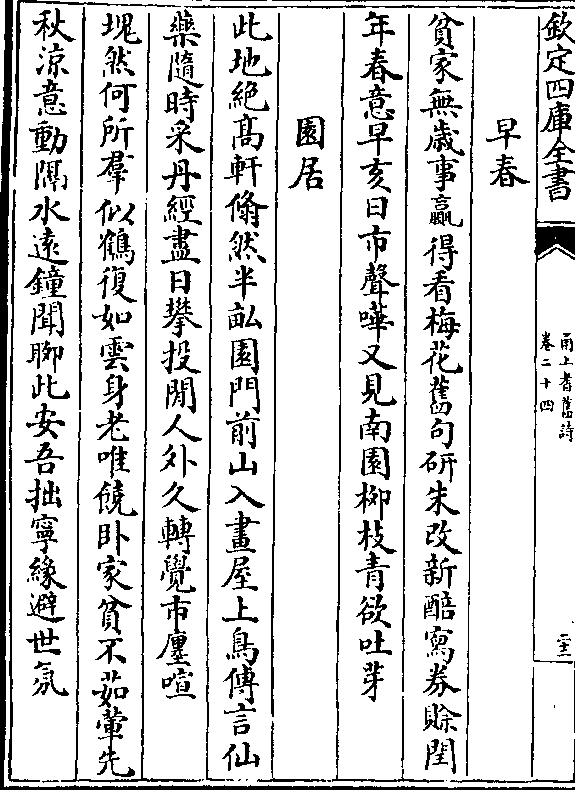 欽定四庫全書
甬上耆舊詩
卷二十四
二十三
早春
貧家無歲事贏得看梅花舊句研朱改新醅寫券賒閏
年春意早亥日市聲嘩又見南園柳枝青欲吐芽
園居
此地絶髙軒翛然半畝園門前山入畫屋上鳥傅言仙
藥隨時采丹經盡日攀投閒人外久轉覺市廛喧
塊然何所羣似鶴復如雲身老唯饒卧家貧不茹葷先
秋涼意動隔水遠鐘聞聊此安吾拙寧緣避世氛